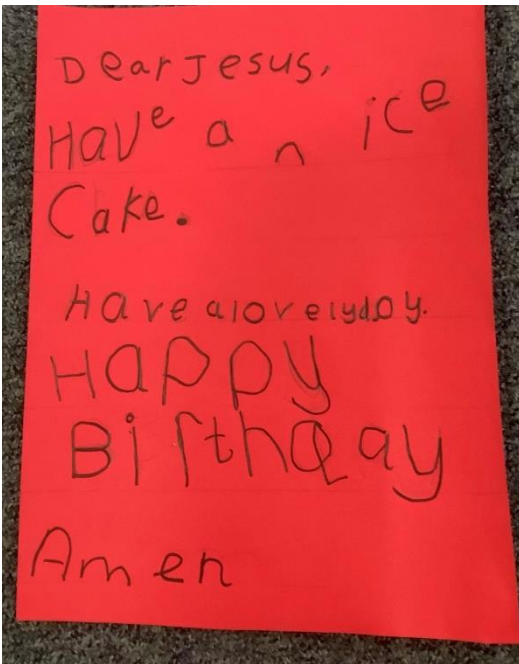 Dear Jesus,
Have a nice
Cake.
Have a lovely day.
Happy
Birthday
Amen